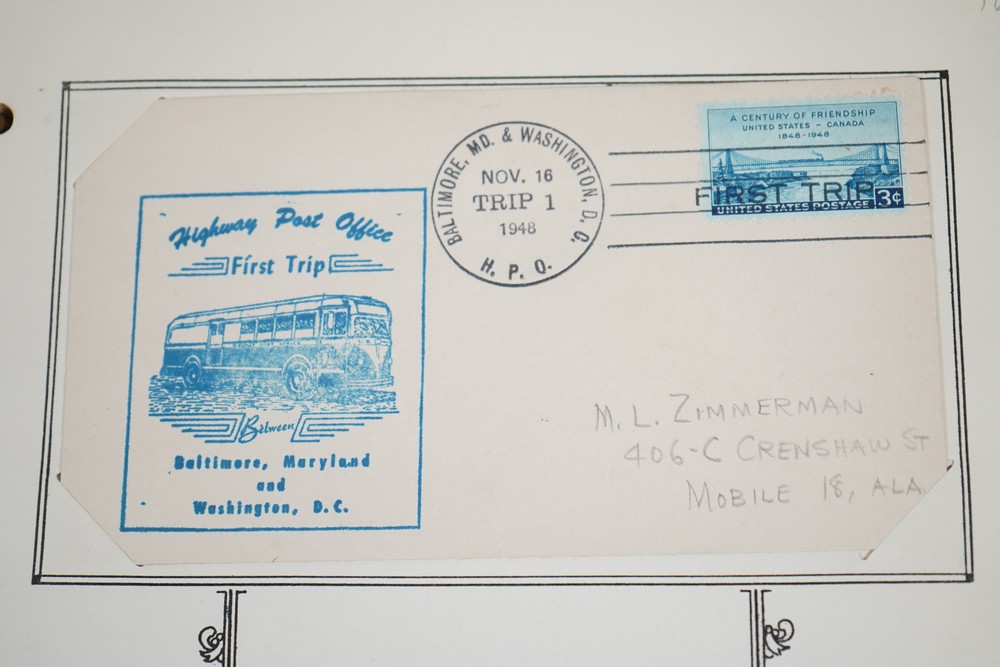 Highway Post Office
First Trip
Between
Baltimore, Maryland
and
Washington, D.C.
BALTIMORE, MD. & WASHINGTON, D. C.
NOV. 16
TRIP 1
1948
H. P. O.
A CENTURY OF FRIENDSHIP
UNITED STATES - CANADA
1848-1948
FIRST TRIP
3¢
UNITED STATES POSTAGE
M. L. ZIMMERMAN
406-C CRENSHAW ST
MOBILE 18, ALA